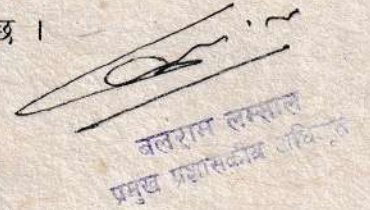 छ ।
बलराम लम्साल
प्रमुख प्रशासकीय अधिकृत